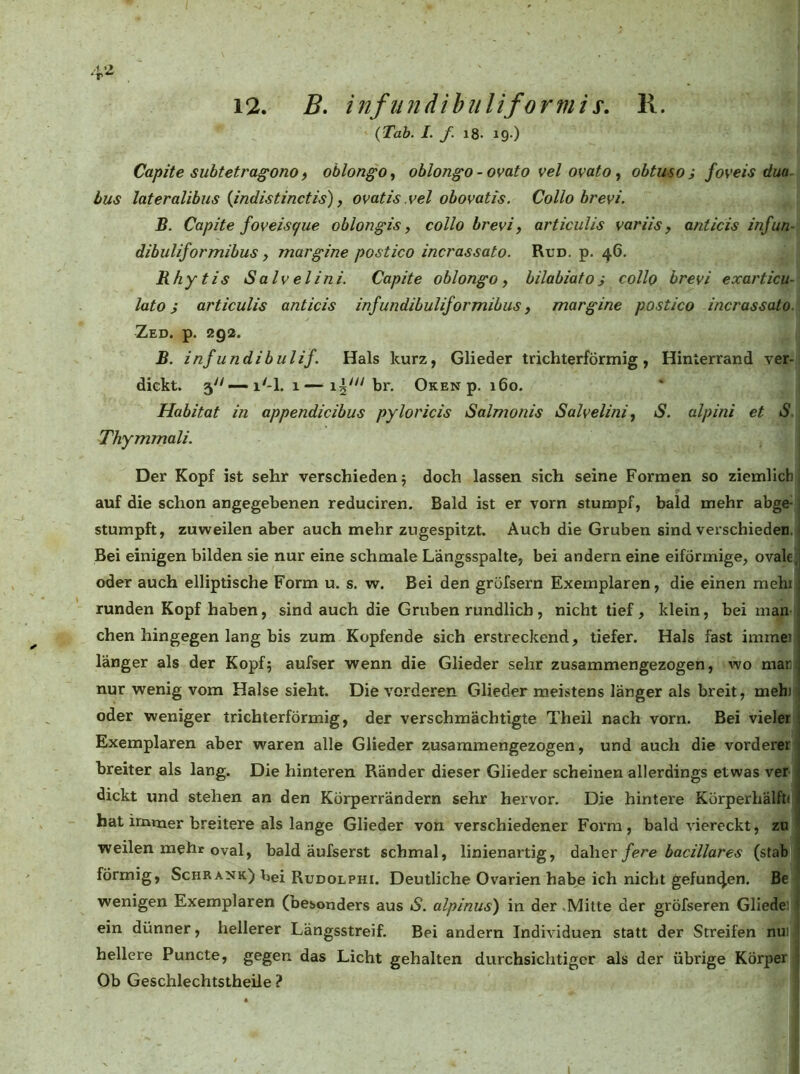 42
12. B. infundibuliformis. R.
(Tab. I. f. 18. 19.)
Capite subtetragono, oblongo, oblongo-ovato vel ovato, obtuso; foveis dua-
bus lateralibus (indistinctis), ovatis vel obovatis. Collo brevi.
B. Capite foveisque oblongis, collo brevi, articulis variis, anticis infun-
dibuliformibus, margine postico incrassato. Rud. p. 46.
Rhytis Salvelini. Capite oblongo, bilabiato; collo brevi exarticu-
lato; articulis anticis infundibuliformibus, margine postico incrassato.
Zed. p. 292.
B. infundibulif. Hals kurz, Glieder trichterförmig, Hinterrand ver-
dickt. 3″ — 1′-l. 1 — 1½‴ br. Oken p. 160.
Habitat in appendicibus pyloricis Salmonis Salvelini, S. alpini et S.
Thymmali.
Der Kopf ist sehr verschieden; doch lassen sich seine Formen so ziemlich
auf die schon angegebenen reduciren. Bald ist er vorn stumpf, bald mehr abge-
stumpft, zuweilen aber auch mehr zugespitzt. Auch die Gruben sind verschieden.
Bei einigen bilden sie nur eine schmale Längsspalte, bei andern eine eiförmige, ovale,
oder auch elliptische Form u. s. w. Bei den gröfsern Exemplaren, die einen mehr
runden Kopf haben, sind auch die Gruben rundlich, nicht tief, klein, bei man-
chen hingegen lang bis zum Kopfende sich erstreckend, tiefer. Hals fast immer
länger als der Kopf; aufser wenn die Glieder sehr zusammengezogen, wo man
nur wenig vom Halse sieht. Die vorderen Glieder meistens länger als breit, mehr
oder weniger trichterförmig, der verschmächtigte Theil nach vorn. Bei vielen
Exemplaren aber waren alle Glieder zusammengezogen, und auch die vorderen
breiter als lang. Die hinteren Ränder dieser Glieder scheinen allerdings etwas ver-
dickt und stehen an den Körperrändern sehr hervor. Die hintere Körperhälfte
hat immer breitere als lange Glieder von verschiedener Form, bald viereckt, zu
weilen mehr oval, bald äufserst schmal, linienartig, daher fere bacillares (stab
förmig, Schrank) bei Rudolphi. Deutliche Ovarien habe ich nicht gefunden. Be
wenigen Exemplaren (besonders aus S. alpinus) in der Mitte der gröfseren Glieder
ein dünner, hellerer Längsstreif. Bei andern Individuen statt der Streifen nur
hellere Puncte, gegen das Licht gehalten durchsichtiger als der übrige Körper
Ob Geschlechtstheile?